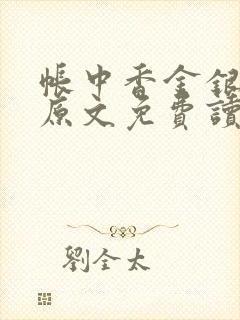 帳中香金銀
原文免費讀
劉全太